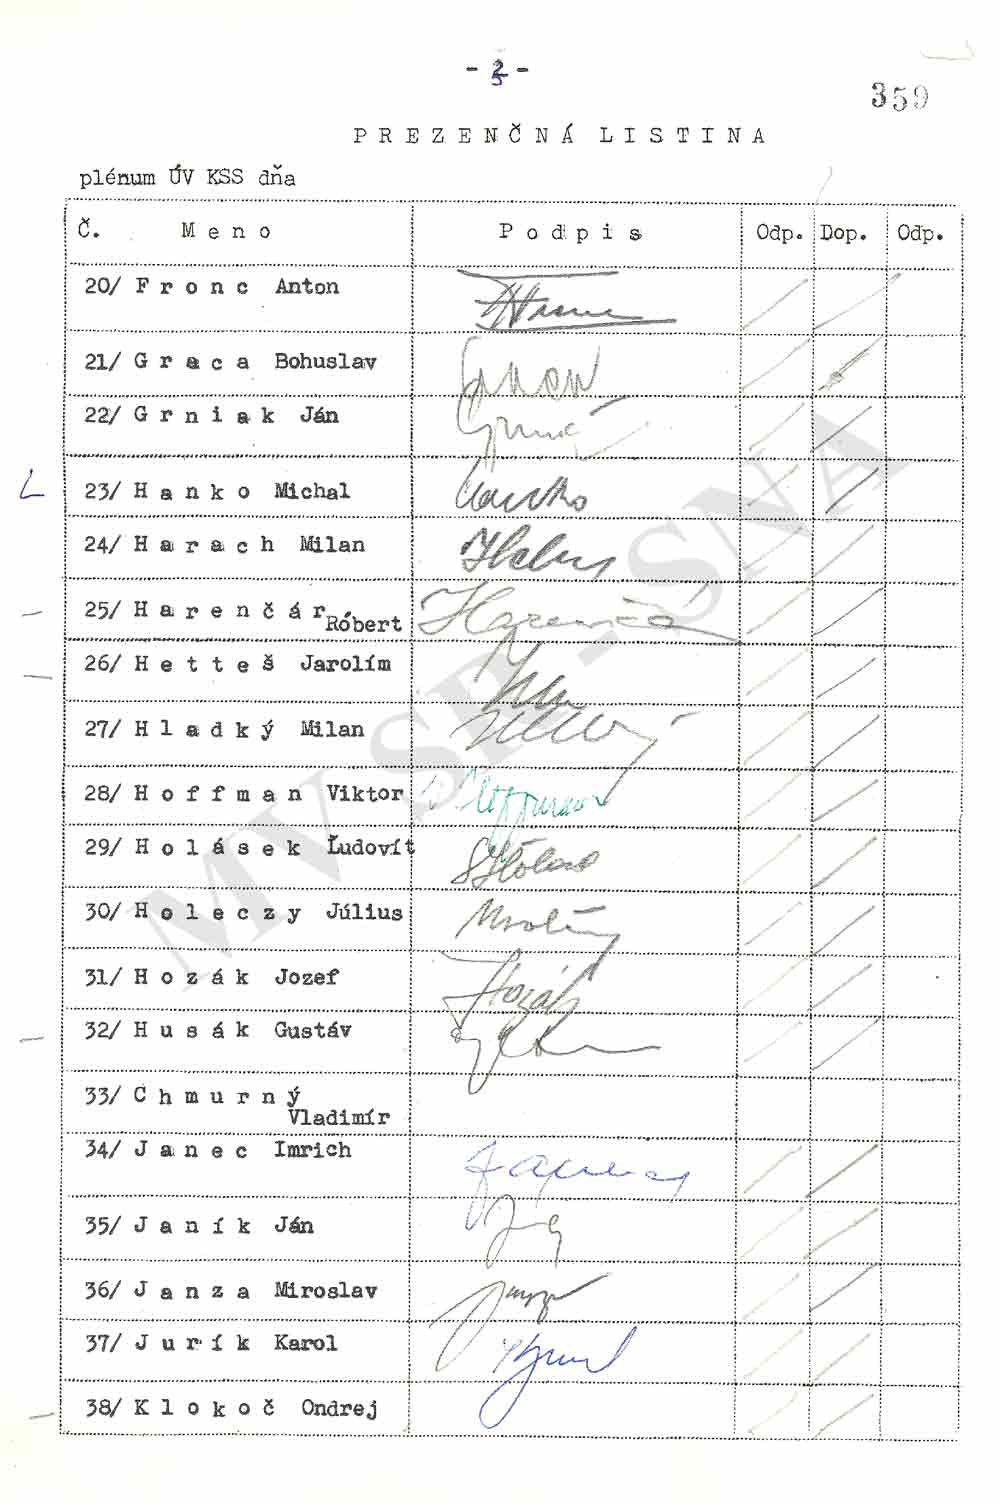 - 2 -
359
P R E Z E N Č N Á   L I S T I N A
plénum ÚV KSS dňa
Č.   M e n o   P o d p i s   Odp.   Dop.   Odp.
20/ F r o n c   Anton
21/ G r a c a   Bohuslav
22/ G r n i a k   Ján
23/ H a n k o   Michal   Hanko
24/ H a r a c h   Milan
25/ H a r e n č á r   Róbert
26/ H e t t e š   Jarolím
27/ H l a d k ý   Milan
28/ H o f f m a n   Viktor
29/ H o l á s e k   Ľudovít
30/ H o l e c z y   Július
31/ H o z á k   Jozef   Hozák
32/ H u s á k   Gustáv
33/ C h m u r n ý
Vladimír
34/ J a n e c   Imrich
35/ J a n í k   Ján
36/ J a n z a   Miroslav
37/ J u r í k   Karol
38/ K l o k o č   Ondrej
MV SR - SNA